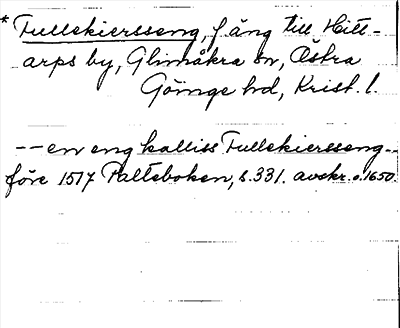 * Tullekiersseng, f. äng till Hitt-
arps by, Glimåkra sn, Östra
Göinge hd, Krist. l.
-- en eng kalliss Tullekiersseng --
före 1517 Palteboken, s. 331. avskr. o. 1650.